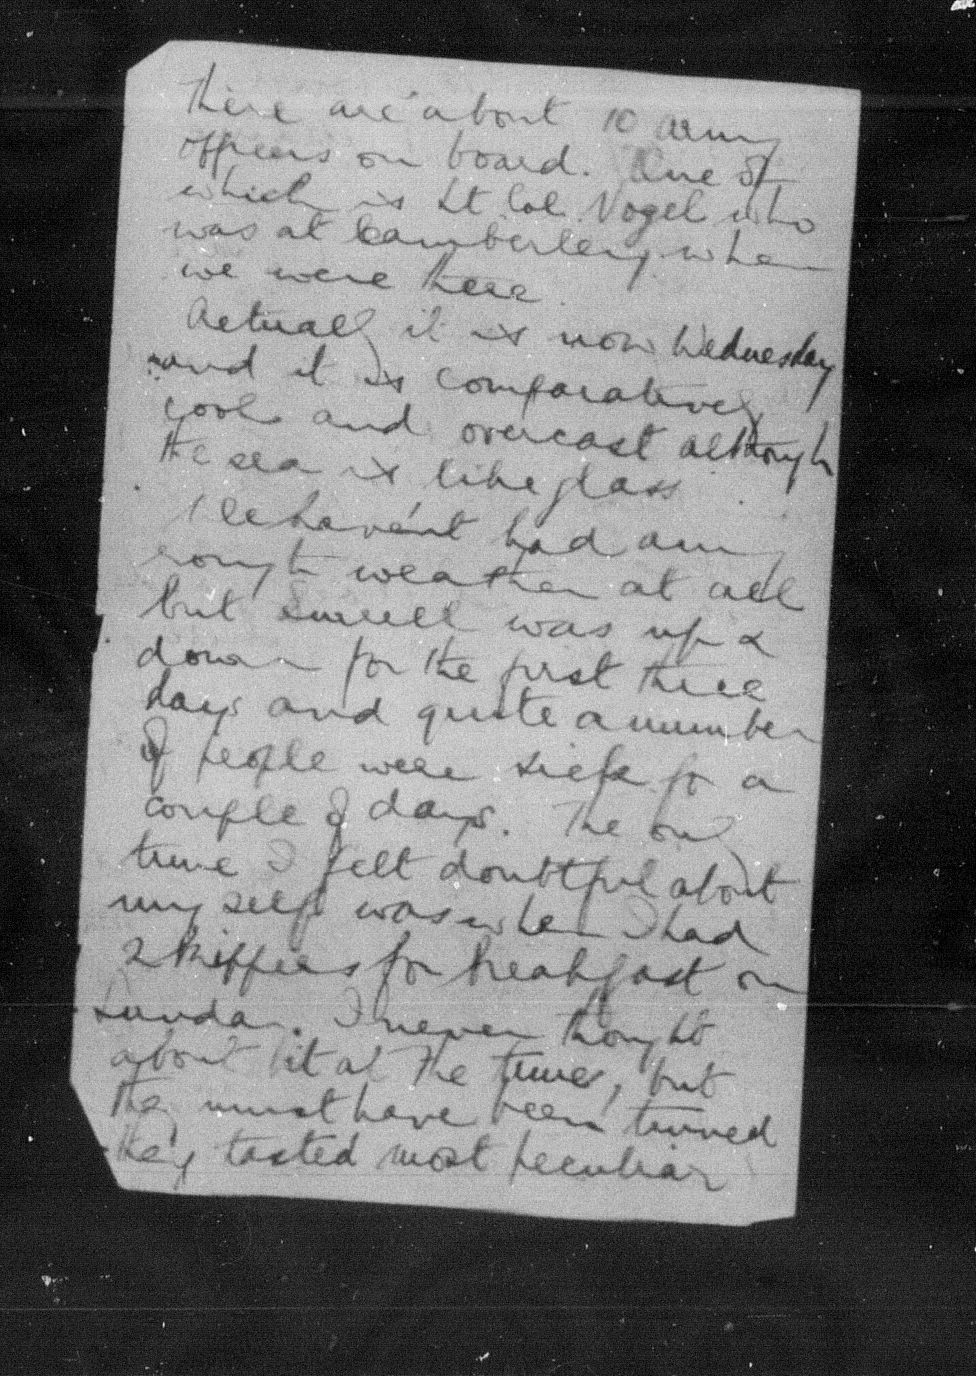 There are about 10 army
officers on board. One of
which is Lt Col Vogel who
was at Camberley when
we were there.
Actually it is now Wednesday
and it is comparatively
cool and overcast although
the sea is like glass
We haven't had any
rough weather at all
but swell was up &
down for the first three
days and quite a number
of people were sick for a
couple of days. The only
time I felt doubtful about
myself was when I had
2 kippers for breakfast on
Sunday. I never thought
about it at the time, but
they must have been tinned
they tasted most peculiar